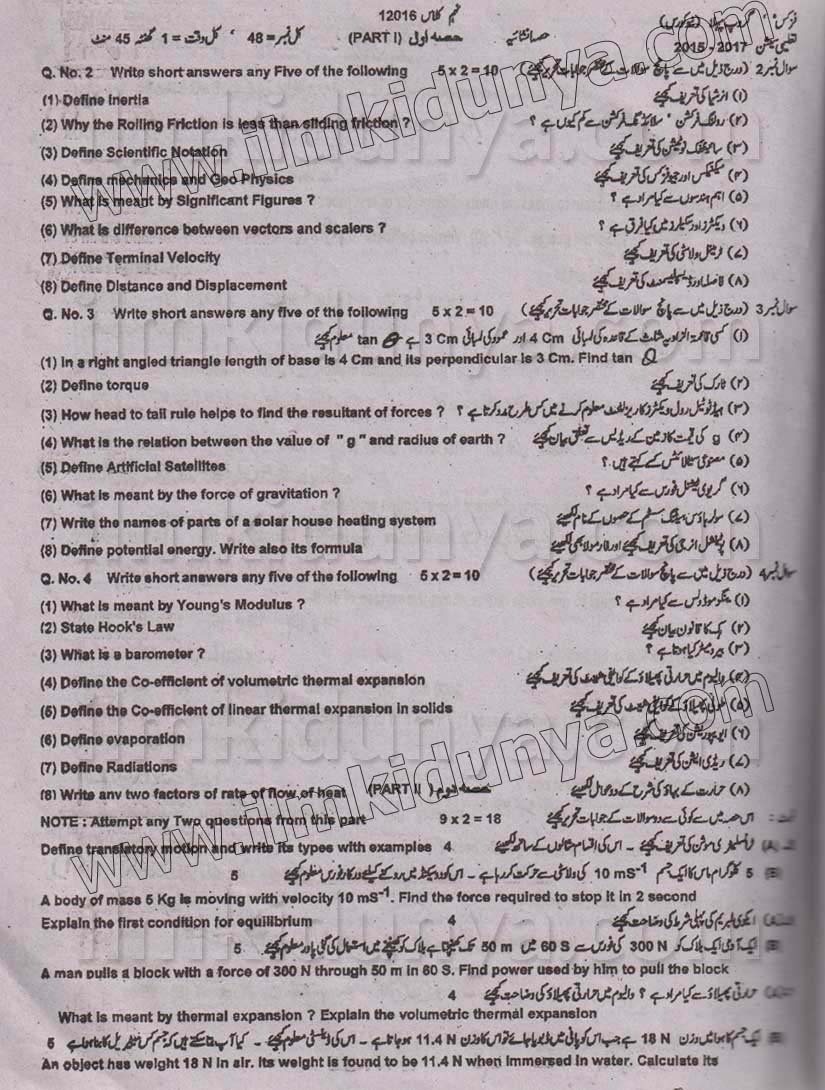 نہم کلاس 12016
فزکس گروپ پہلا (نیو کورس) حصہ انشائیہ حصہ اولی (PART I) کل نمبر = 48 ، کل وقت = 1 گھنٹہ 45 منٹ
تعلیمی سیشن 2015 - 2017
Q. No. 2 Write short answers any Five of the following 5 x 2 = 10 سوال نمبر 2 (درج ذیل میں سے پانچ سوالات کے مختصر جوابات تحریر کیجئے)
(1) Define Inertia (۱) انرشیا کی تعریف کیجئے
(2) Why the Rolling Friction is less than sliding friction ? (۲) رولنگ فرکشن ' سلائڈنگ فرکشن سے کم کیوں ہے ؟
(3) Define Scientific Notation (۳) سائنٹفک نوٹیشن کی تعریف کیجئے
(4) Define mechanics and Geo Physics (۴) میکینکس اور جیوفزکس کی تعریف کیجئے
(5) What is meant by Significant Figures ? (۵) اہم ہندسوں سے کیا مراد ہے ؟
(6) What is difference between vectors and scalers ? (۶) ویکٹرز اور سکیلرز میں کیا فرق ہے ؟
(7) Define Terminal Velocity (۷) ٹرمینل ولاسٹی کی تعریف کیجئے
(8) Define Distance and Displacement (۸) فاصلہ اور ڈسپلیسمنٹ کی تعریف کیجئے
Q. No. 3 Write short answers any five of the following 5 x 2 = 10 سوال نمبر 3 (درج ذیل میں سے پانچ سوالات کے مختصر جوابات تحریر کیجئے)
(۱) کسی قائمۃ الزاویہ مثلث کے قاعدہ کی لمبائی 4 Cm اور عمود کی لمبائی 3 Cm ہے tan θ معلوم کیجئے
(1) In a right angled triangle length of base is 4 Cm and its perpendicular is 3 Cm. Find tan θ
(2) Define torque (۲) ٹارک کی تعریف کیجئے
(3) How head to tail rule helps to find the resultant of forces ? (۳) ہیڈ ٹو ٹیل رول ویکٹرز کا ریزلٹنٹ معلوم کرنے میں کس طرح مدد کرتا ہے ؟
(4) What is the relation between the value of " g " and radius of earth ? (۴) g کی قیمت کا زمین کے ریڈیس سے تعلق بیان کیجئے
(5) Define Artificial Satellites (۵) مصنوعی سیٹلائٹس کسے کہتے ہیں ؟
(6) What is meant by the force of gravitation ? (۶) گریوی ٹیشنل فورس سے کیا مراد ہے ؟
(7) Write the names of parts of a solar house heating system (۷) سولر ہاؤس ہیٹنگ سسٹم کے حصوں کے نام لکھیئے
(8) Define potential energy. Write also its formula (۸) پوٹینشل انرجی کی تعریف کیجئے اور فارمولا بھی لکھیئے
Q. No. 4 Write short answers any five of the following 5 x 2 = 10 سوال نمبر 4 (درج ذیل میں سے پانچ سوالات کے مختصر جوابات تحریر کیجئے)
(1) What is meant by Young's Modulus ? (۱) ینگز موڈولس سے کیا مراد ہے ؟
(2) State Hook's Law (۲) ہک کا قانون بیان کیجئے
(3) What is a barometer ? (۳) بیرومیٹر کیا ہوتا ہے ؟
(4) Define the Co-efficient of volumetric thermal expansion (۴) والیوم میں حرارتی پھیلاؤ کے کوایفی شینٹ کی تعریف کیجئے
(5) Define the Co-efficient of linear thermal expansion in solids (۵) طولی پھیلاؤ کے کوایفی شینٹ کی تعریف کیجئے
(6) Define evaporation (۶) ایویپوریشن کی تعریف کیجئے
(7) Define Radiations (۷) ریڈی ایشن کی تعریف کیجئے
(8) Write any two factors of rate of flow of heat (PART II) حصہ دوم (۸) حرارت کے بہاؤ کی شرح کے دو عوامل لکھیئے
NOTE : Attempt any Two questions from this part 9 x 2 = 18 اس حصہ میں سے کوئی سے دو سوالات کے جوابات تحریر کیجئے
Define translatory motion and write its types with examples 4 ٹرانسلیٹری موشن کی تعریف کیجئے - اس کی اقسام مثالوں کے ساتھ لکھیئے
5 5 کلوگرام ماس کا ایک جسم 10 mS⁻¹ کی ولاسٹی سے حرکت کر رہا ہے - اس کو دو سیکنڈ میں روکنے کیلئے درکار فورس معلوم کیجئے
A body of mass 5 Kg is moving with velocity 10 mS⁻¹. Find the force required to stop it in 2 second
Explain the first condition for equilibrium 4 ایکوی لبریم کی پہلی شرط کی وضاحت کیجئے
5 ایک آدمی ایک بلاک کو 300 N کی فورس سے 60 S میں 50 m تک کھینچتا ہے بلاک کو کھینچنے میں استعمال کی گئی پاور معلوم کیجئے
A man pulls a block with a force of 300 N through 50 m in 60 S. Find power used by him to pull the block
4 حرارتی پھیلاؤ سے کیا مراد ہے ؟ والیوم میں حرارتی پھیلاؤ کی وضاحت کیجئے
What is meant by thermal expansion ? Explain the volumetric thermal expansion
5 ایک جسم کا ہوا میں وزن 18 N ہے جب اس کو پانی میں ڈبویا جائے تو اس کا وزن 11.4 N ہو جاتا ہے - اس کی ڈینسٹی معلوم کیجئے - کیا آپ بتا سکتے ہیں کہ جسم کس مٹیریل کا بنا ہوا ہے
An object has weight 18 N in air. Its weight is found to be 11.4 N when immersed in water. Calculate its
www.ilmkidunya.com
www.ilmkidunya.com